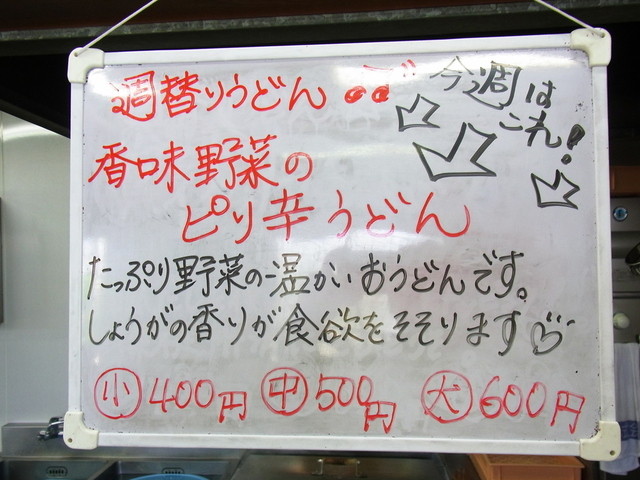 週替りうどん
今週は
これ!
香味野菜の
ピリ辛うどん
たっぷり野菜の温かいおうどんです。
しょうがの香りが食欲をそそります♡
小400円 中500円 大600円